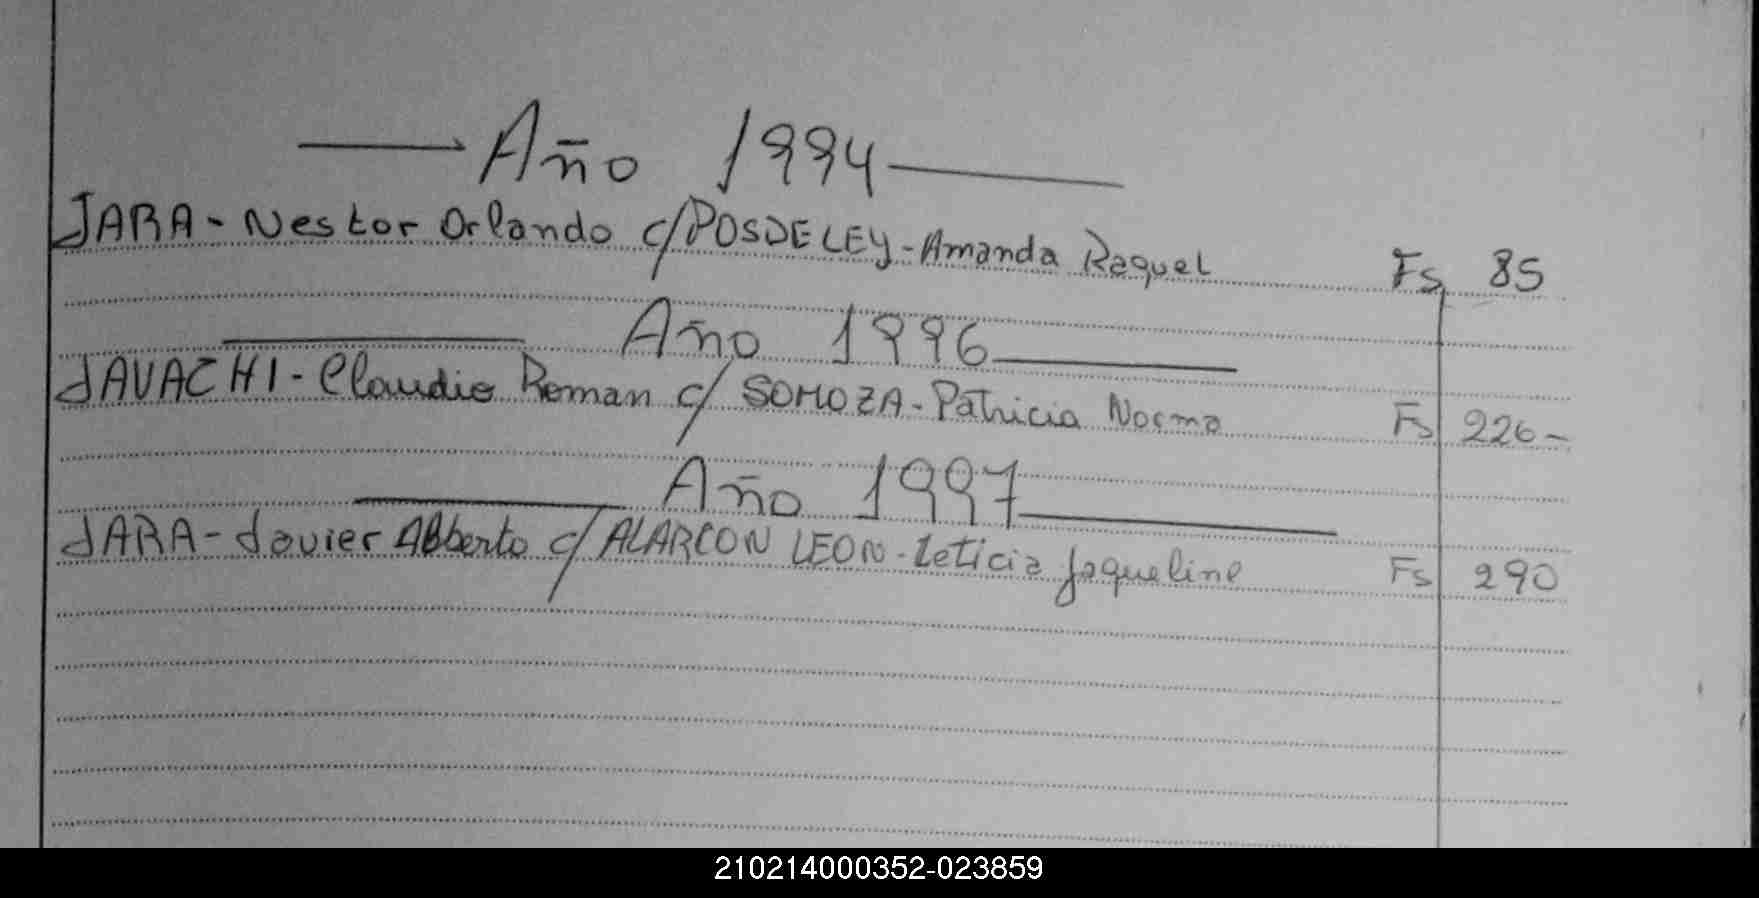 Año 1994
JARA - Nestor Orlando c/ POSDELEY - Amanda Raquel Fs 85
Año 1996
JAVACHI - Claudio Roman c/ SOMOZA - Patricia Norma Fs 226 -
Año 1997
JARA - Javier Alberto c/ ALARCON LEON - Leticia Jaqueline Fs 290
210214000352-023859